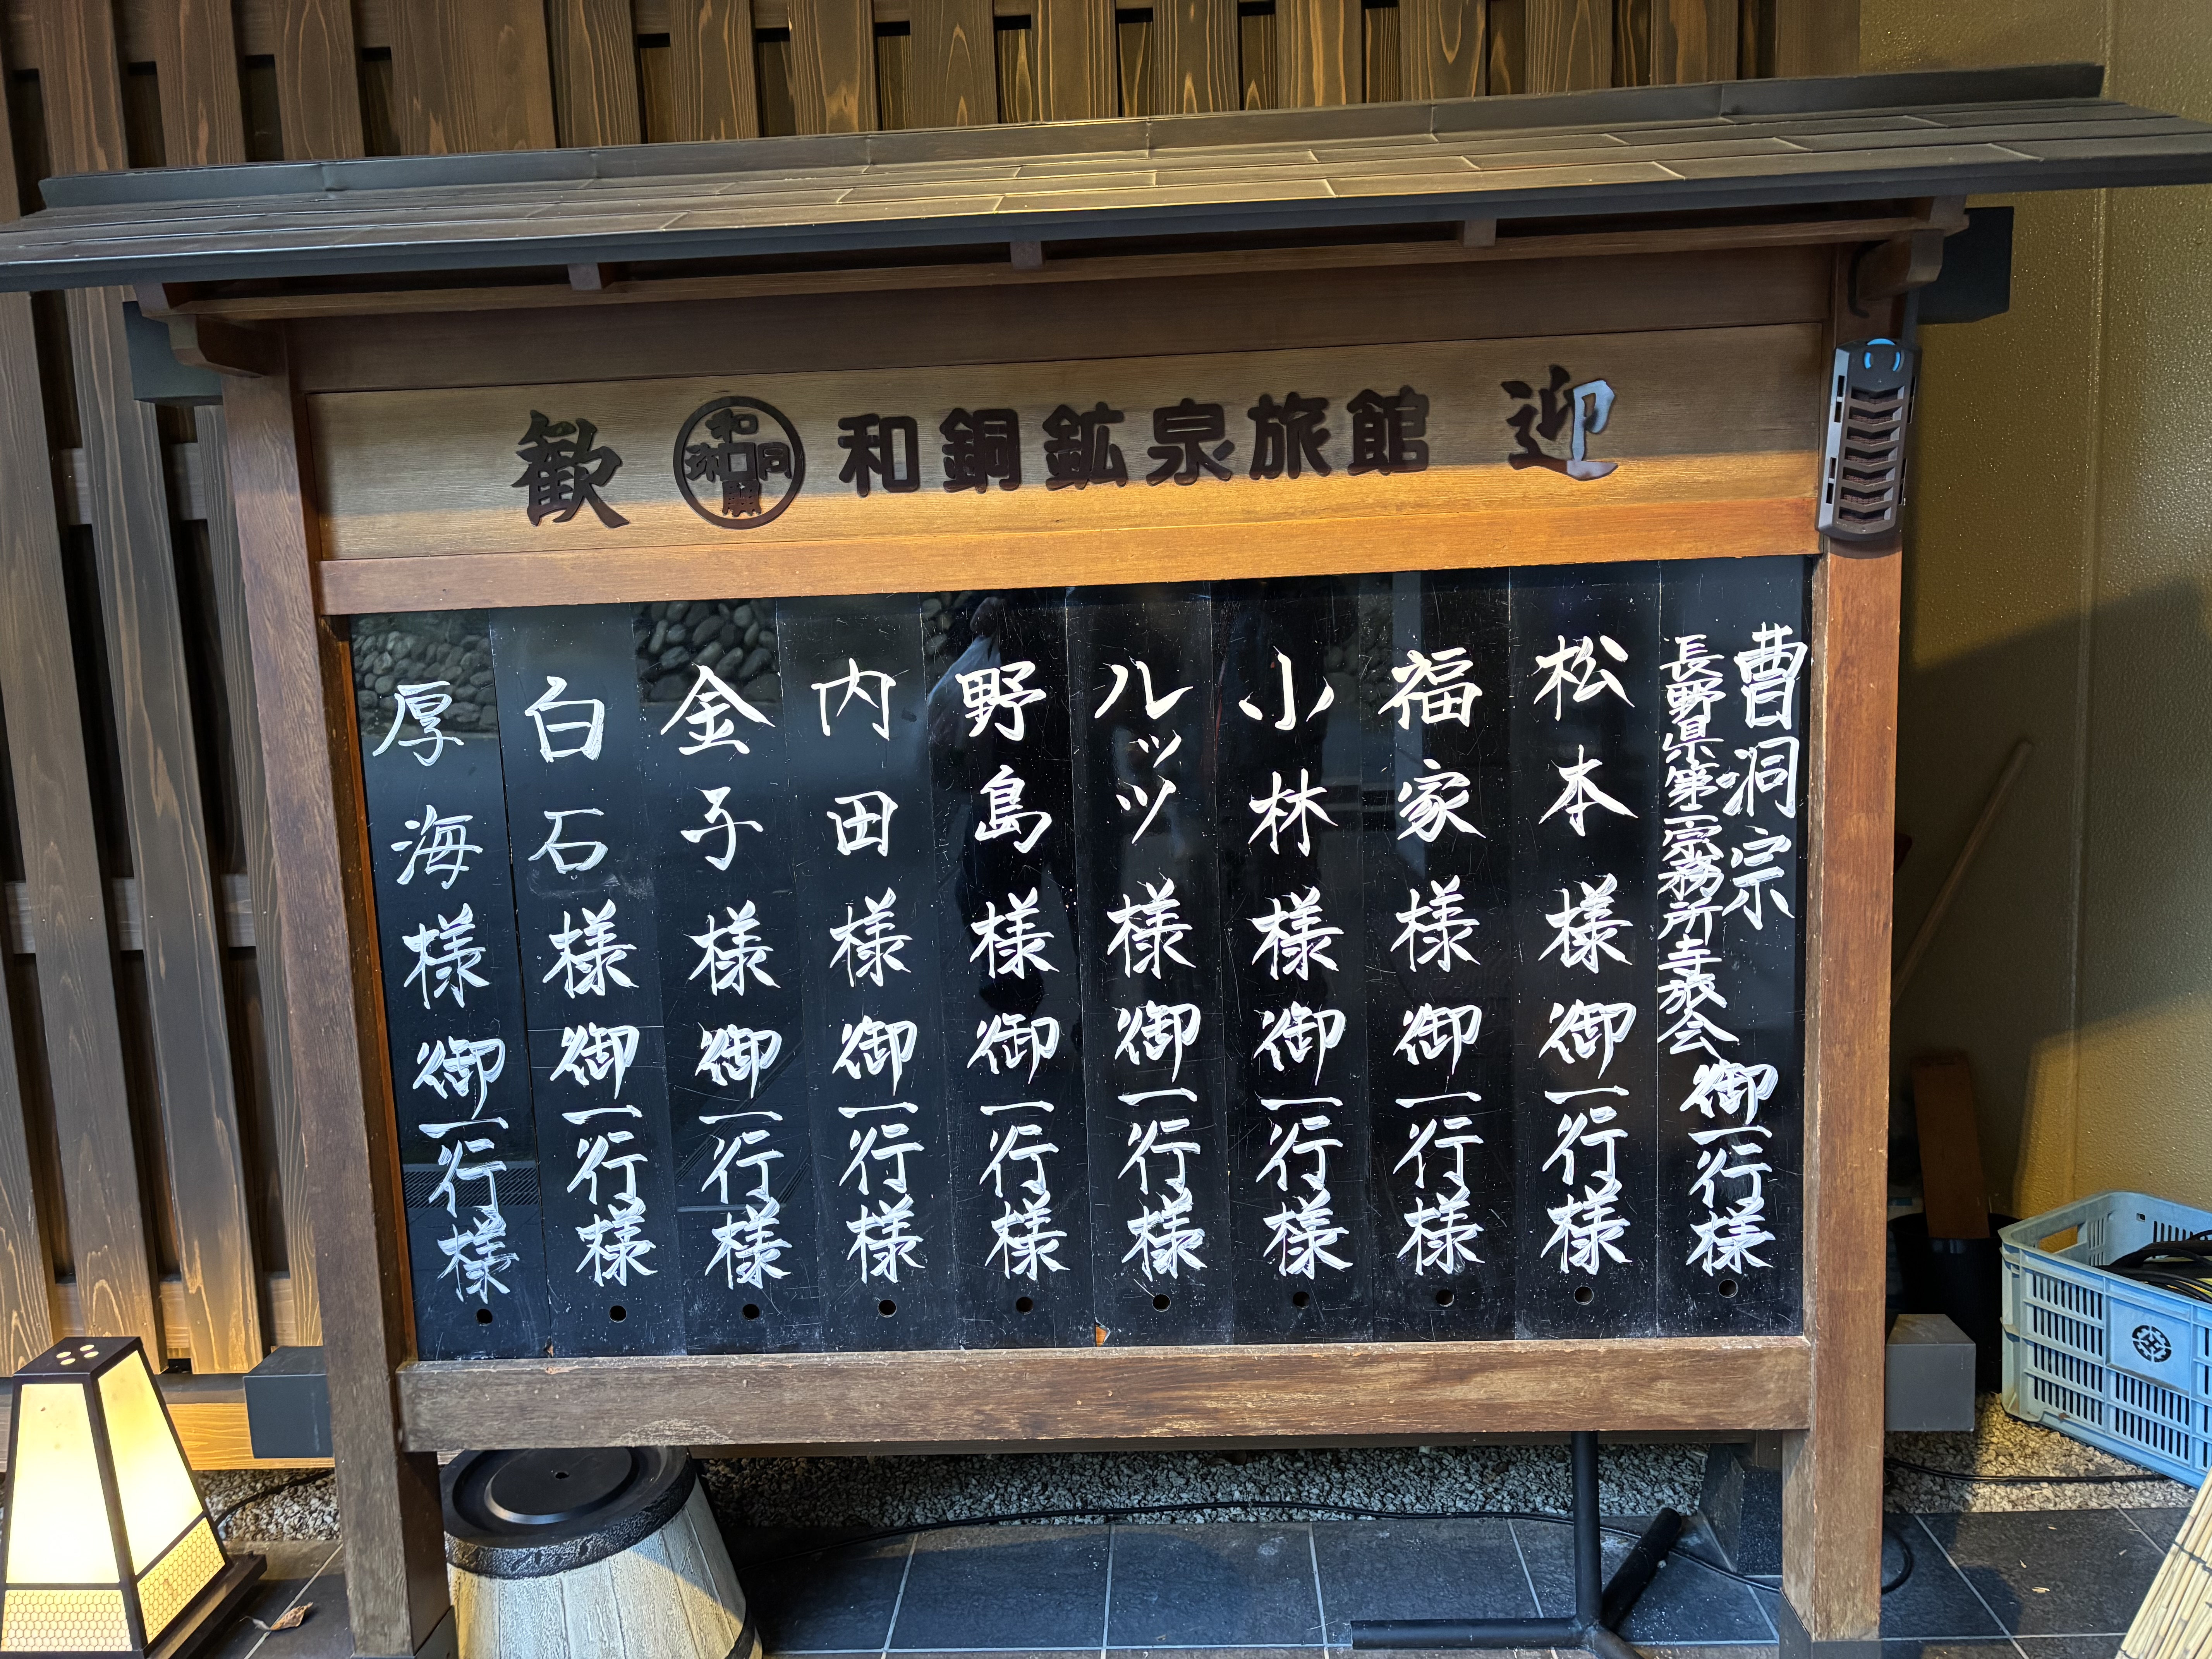 歓 和同開珎 和銅鉱泉旅館 迎
曹洞宗
長野県第一宗務所寺族会
御一行様
松本様御一行様
福家様御一行様
小林様御一行様
ルッツ様御一行様
野島様御一行様
内田様御一行様
金子様御一行様
白石様御一行様
厚海様御一行様